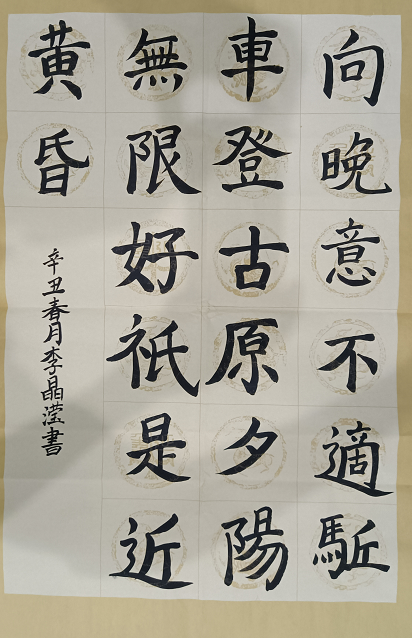 向晚意不適駈
車登古原夕陽
無限好祇是近
黄昏
辛丑春月李晶滢書